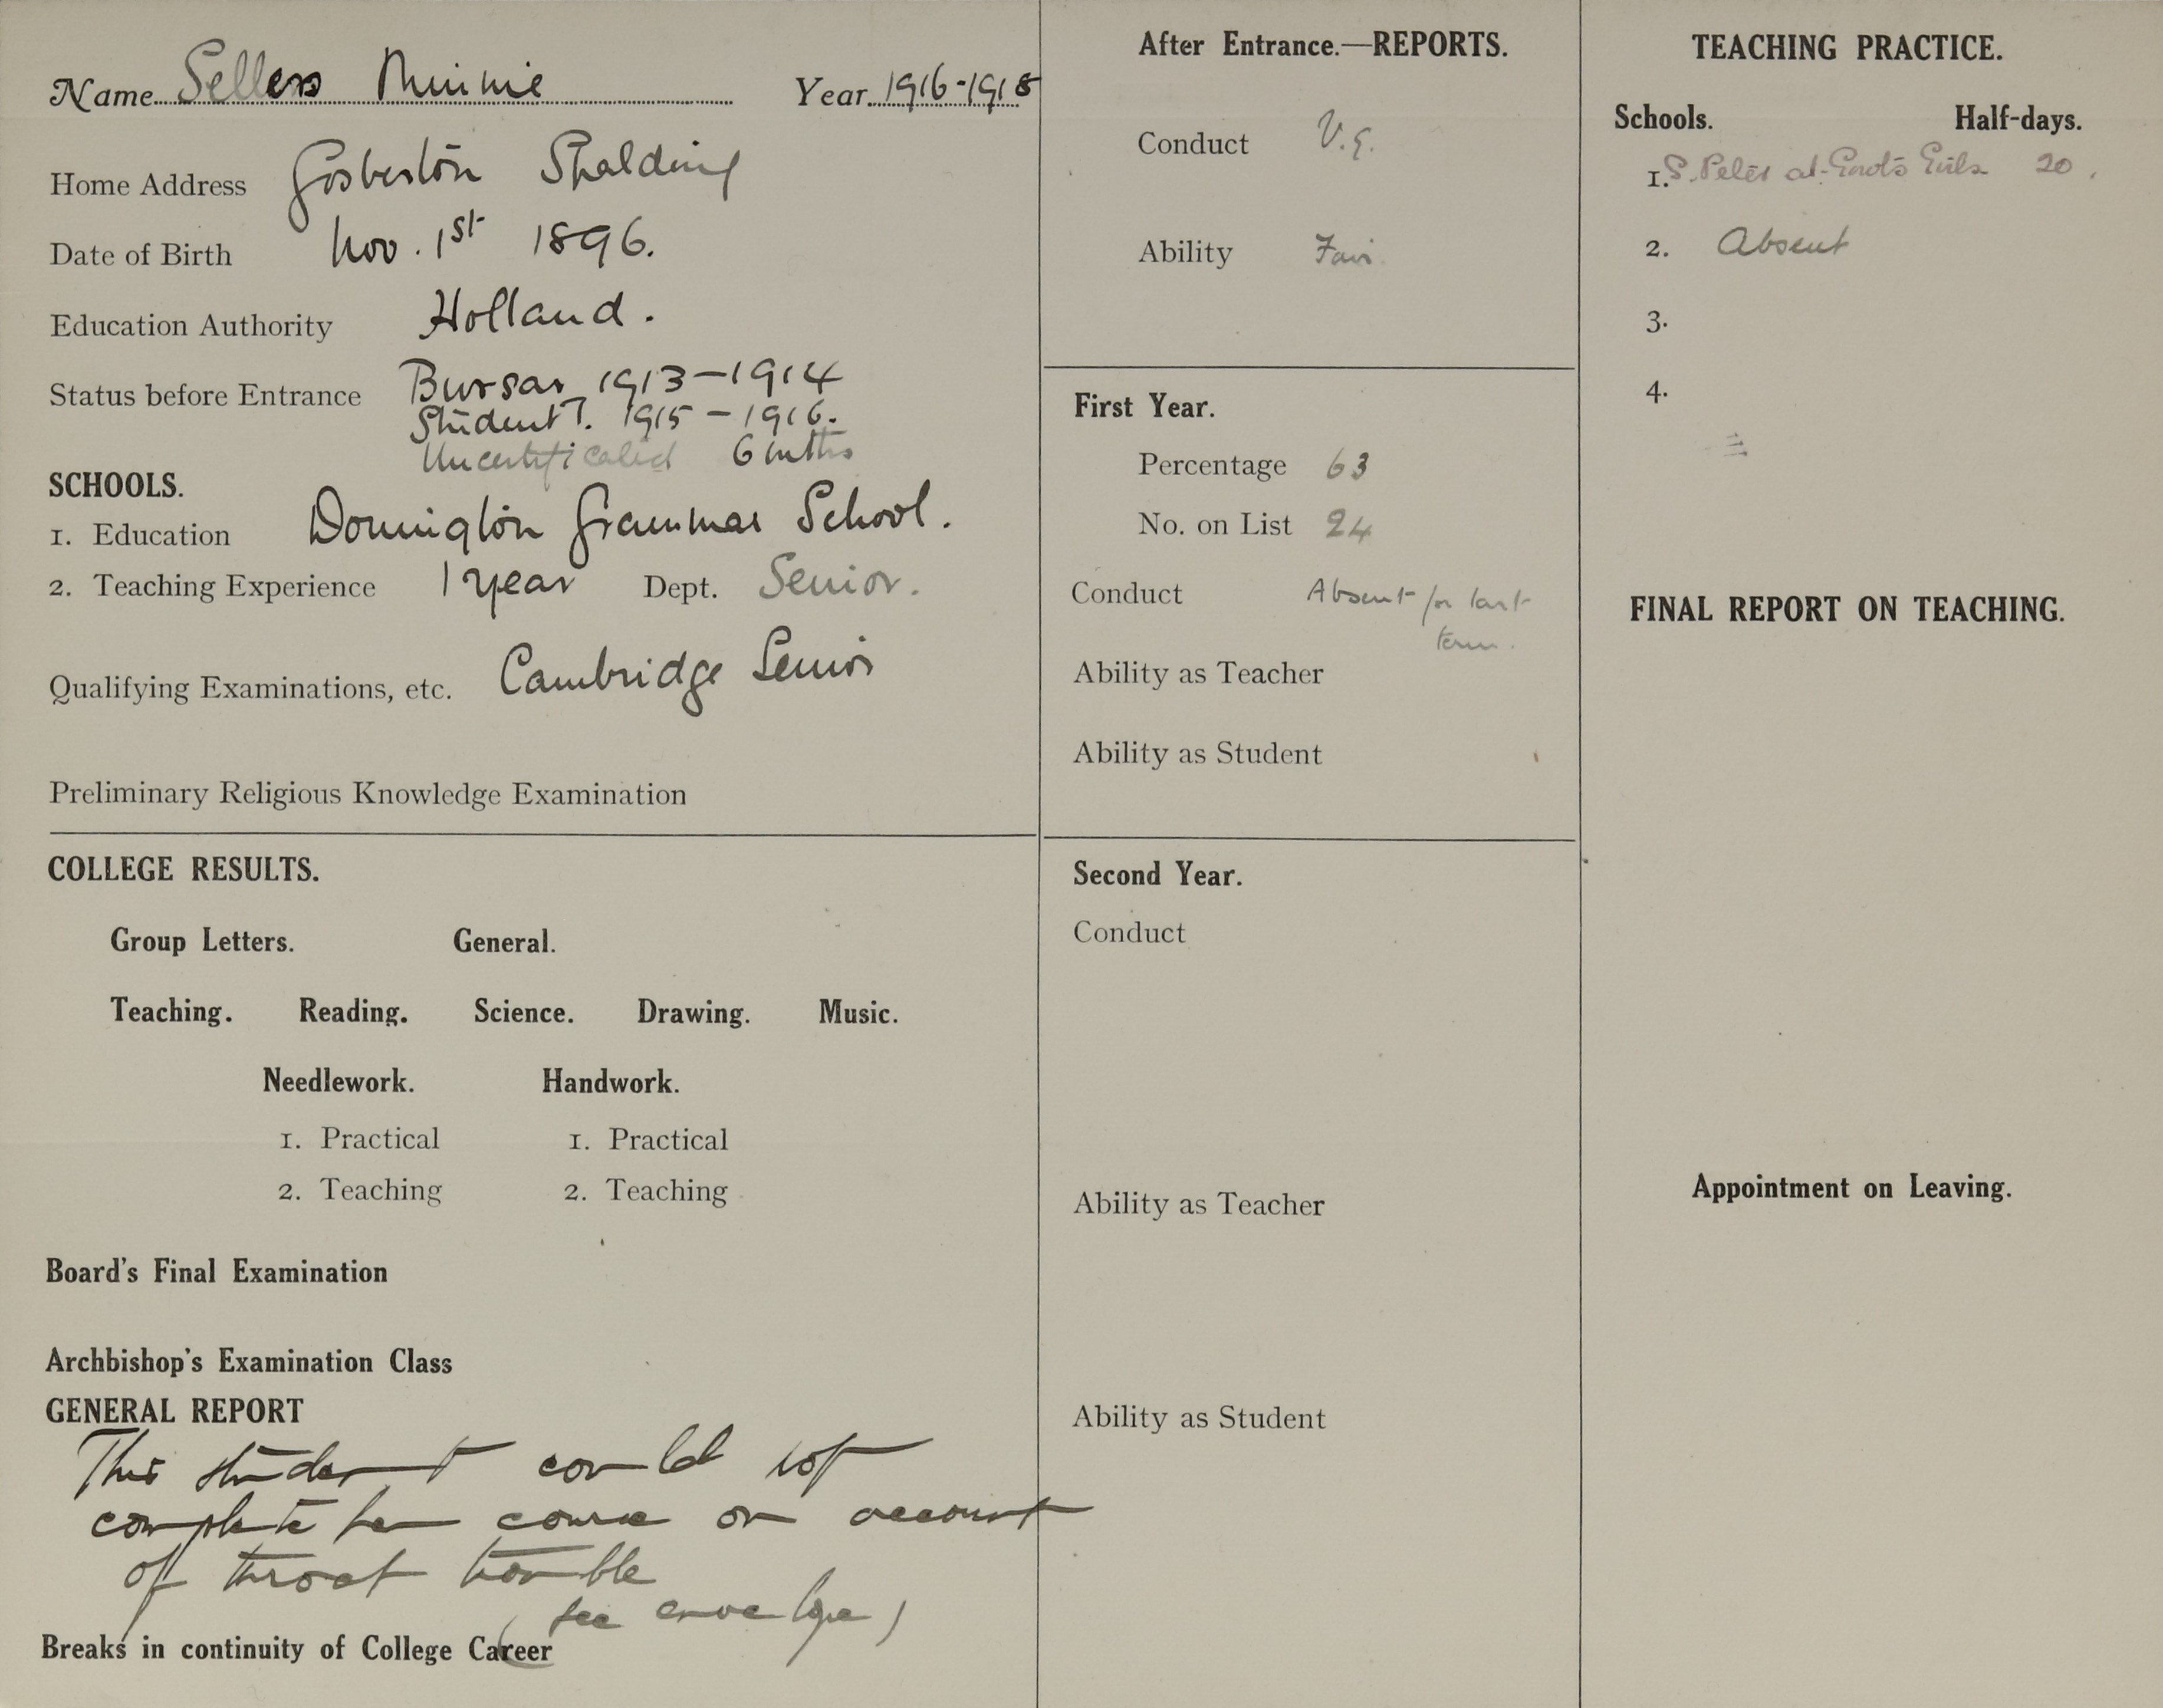 Name Sellers Minnie Year 1916-1918
Home Address Gosberton Spalding
Date of Birth Nov. 1st 1896.
Education Authority Holland.
Status before Entrance Bursar 1913-1914
Student T. 1915-1916.
Uncertificated 6 mths
SCHOOLS.
1. Education Donington Grammar School.
2. Teaching Experience 1 year Dept. Senior.
Qualifying Examinations, etc. Cambridge Senior
Preliminary Religious Knowledge Examination
COLLEGE RESULTS.
Group Letters. General.
Teaching. Reading. Science. Drawing. Music.
Needlework. Handwork.
1. Practical 1. Practical
2. Teaching 2. Teaching
Board's Final Examination
Archbishop's Examination Class
GENERAL REPORT
This student could not
complete her course on account
of throat trouble
(see envelope)
Breaks in continuity of College Career
After Entrance.—REPORTS.
Conduct V.G.
Ability Fair
First Year.
Percentage 63
No. on List 24
Conduct Absent for last
term.
Ability as Teacher
Ability as Student
Second Year.
Conduct
Ability as Teacher
Ability as Student
TEACHING PRACTICE.
Schools. Half-days.
1. S. Peter at Gowts Girls 20.
2. Absent
3.
4.
FINAL REPORT ON TEACHING.
Appointment on Leaving.